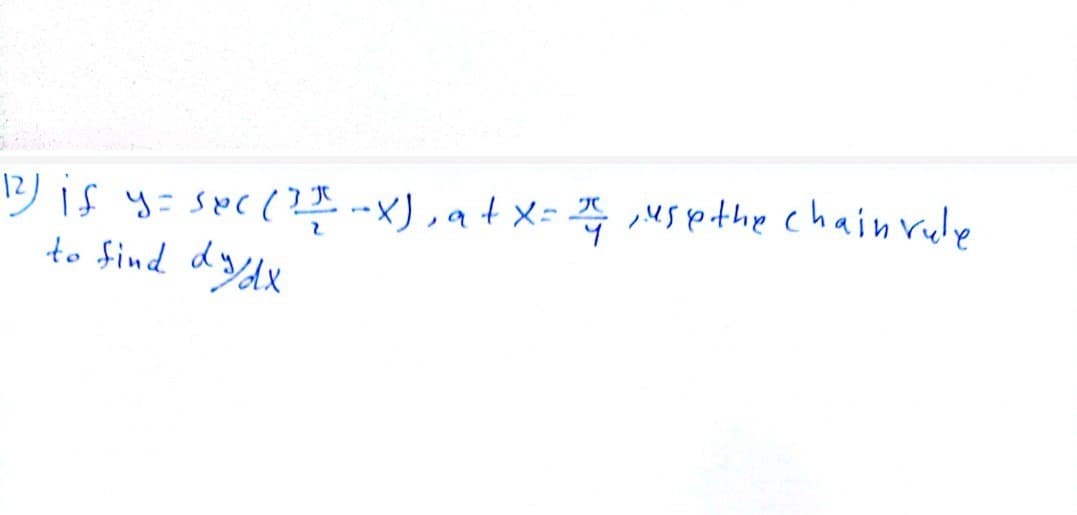 12) if y = sec(3π/2 - x), at x = π/4, use the chain rule
to find dy/dx